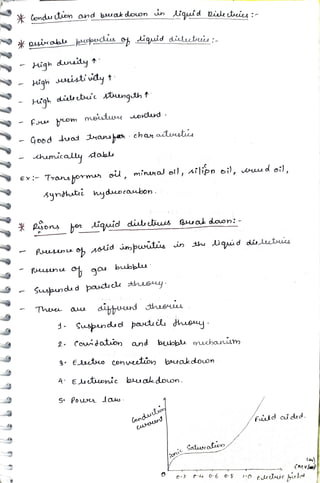 * Conduction and breakdown in liquid Dielectrics :-
* Desirable properties of liquid dielectrics :-
- High density ↑
- High resistivity ↑
- High dielectric strength ↑
- Free from moisture content.
- Good heat transfer characteristics
- chemically stable
Ex:- Transformer oil, mineral oil, silipn oil, oil,
synthetic hydrocarbon.
* for liquid dielectrics Break down:-
- Presence of solid impurities in the liquid dielectrics
- Presence of gas bubble
- Suspended particle theory.
- There are different theories
1. Suspended particle theory.
2. Cavidation and bubble mechanism
3. Electro convection breakdown
4. Electronic breakdown.
5. Power law.
Conduction
current
Ionic Saturation
Field aided.
0 0.2 0.4 0.6 0.8 1.0 electric field